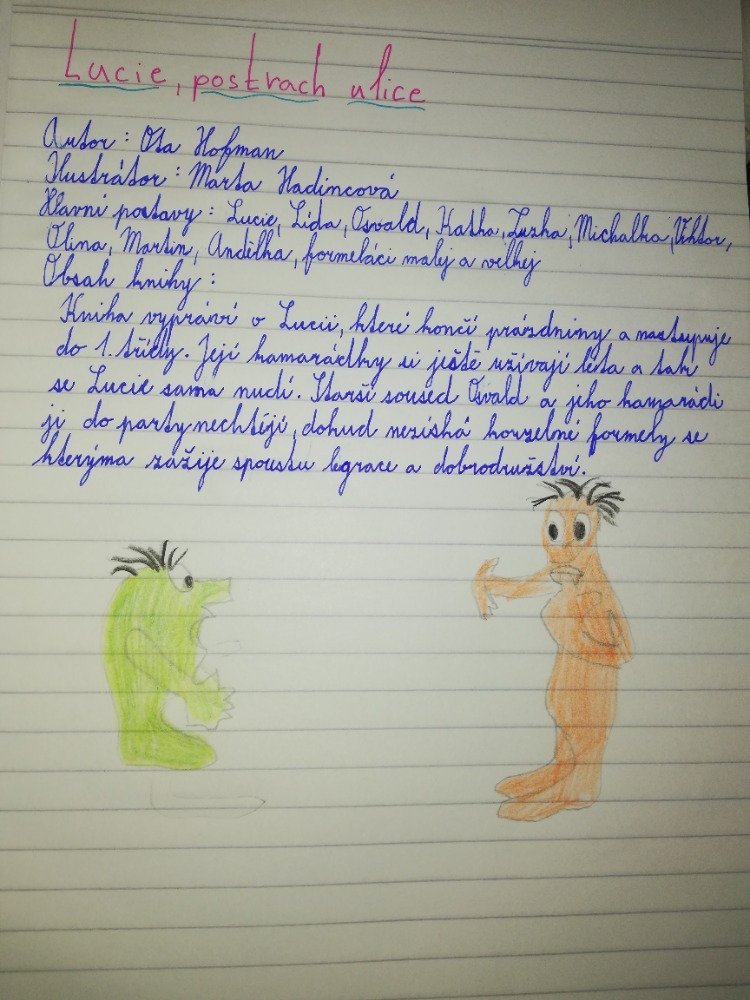 Lucie, postrach ulice
Autor: Ota Hofman
Ilustrátor: Marta Hadincová
Hlavní postavy: Lucie, Lída, Osvald, Katka, Zuzka, Michalka, Viktor,
Olina, Martin, Andělka, formeláci malej a velkej
Obsah knihy:
Kniha vypráví o Lucii, které končí prázdniny a nastupuje
do 1. třídy. Její kamarádky si ještě užívají léta a tak
se Lucie sama nudí. Starší soused Osvald a jeho kamarádi
ji do party nechtějí, dokud nezíská kouzelné formely se
kterýma zážije spoustu legrace a dobrodružství.